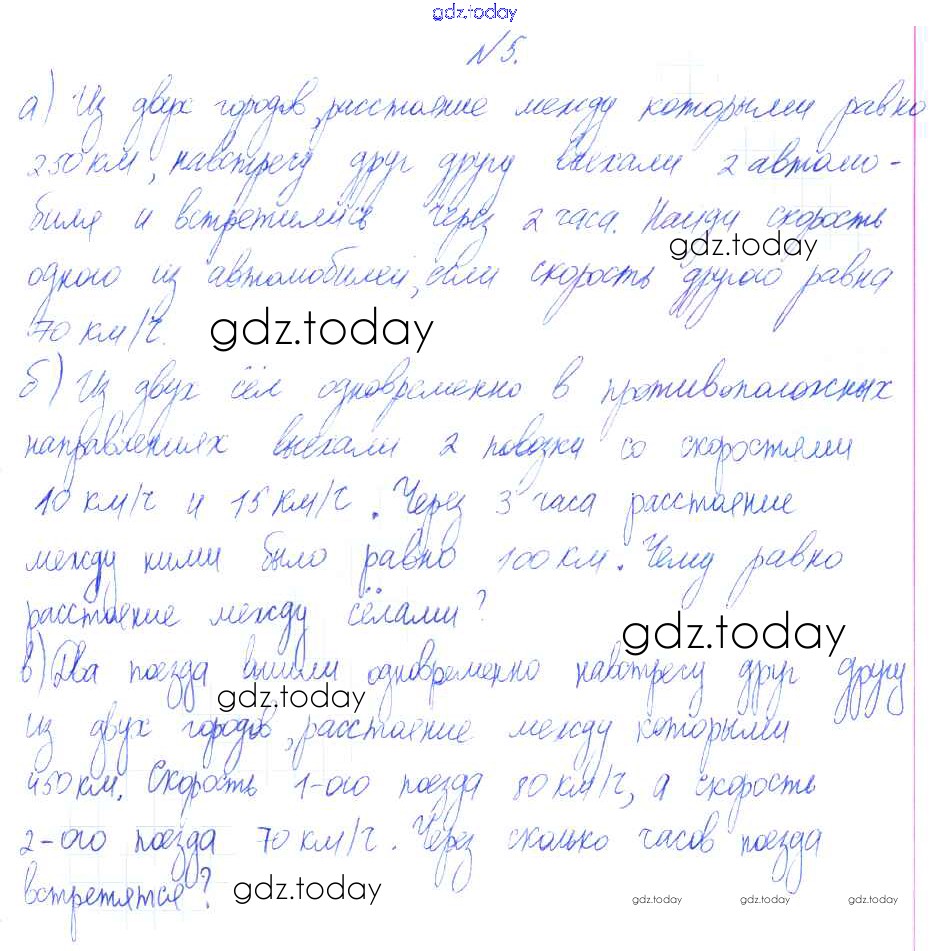 gdz.today
№5.
а) Из двух городов, расстояние между которыми равно
250 км, навстречу друг другу выехали 2 автомо-
биля и встретились через 2 часа. Найди скорость
gdz.today
одного из автомобилей, если скорость другого равна
70 км/ч.
gdz.today
б) Из двух сёл одновременно в противоположных
направлениях выехали 2 повозки со скоростями
10 км/ч и 15 км/ч. Через 3 часа расстояние
между ними было равно 100 км. Чему равно
расстояние между сёлами?
gdz.today
в) Два поезда вышли одновременно навстречу друг другу
gdz.today
из двух городов, расстояние между которыми
450 км. Скорость 1-ого поезда 80 км/ч, а скорость
2-ого поезда 70 км/ч. Через сколько часов поезда
встретятся?
gdz.today
gdz.today gdz.today gdz.today